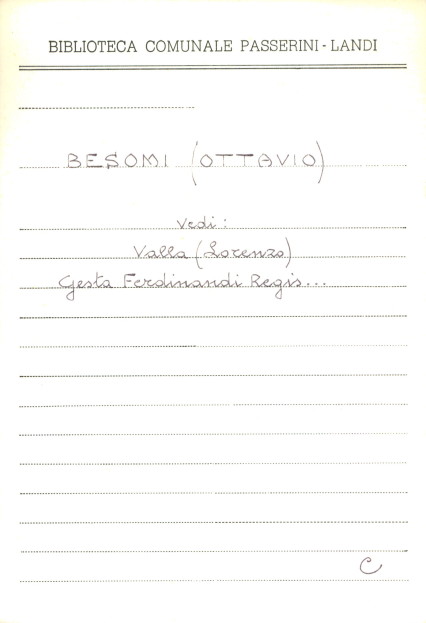 BIBLIOTECA COMUNALE PASSERINI-LANDI
BESOMI (OTTAVIO)
Vedi:
Valla (Lorenzo)
Gesta Ferdinandi Regis...
C